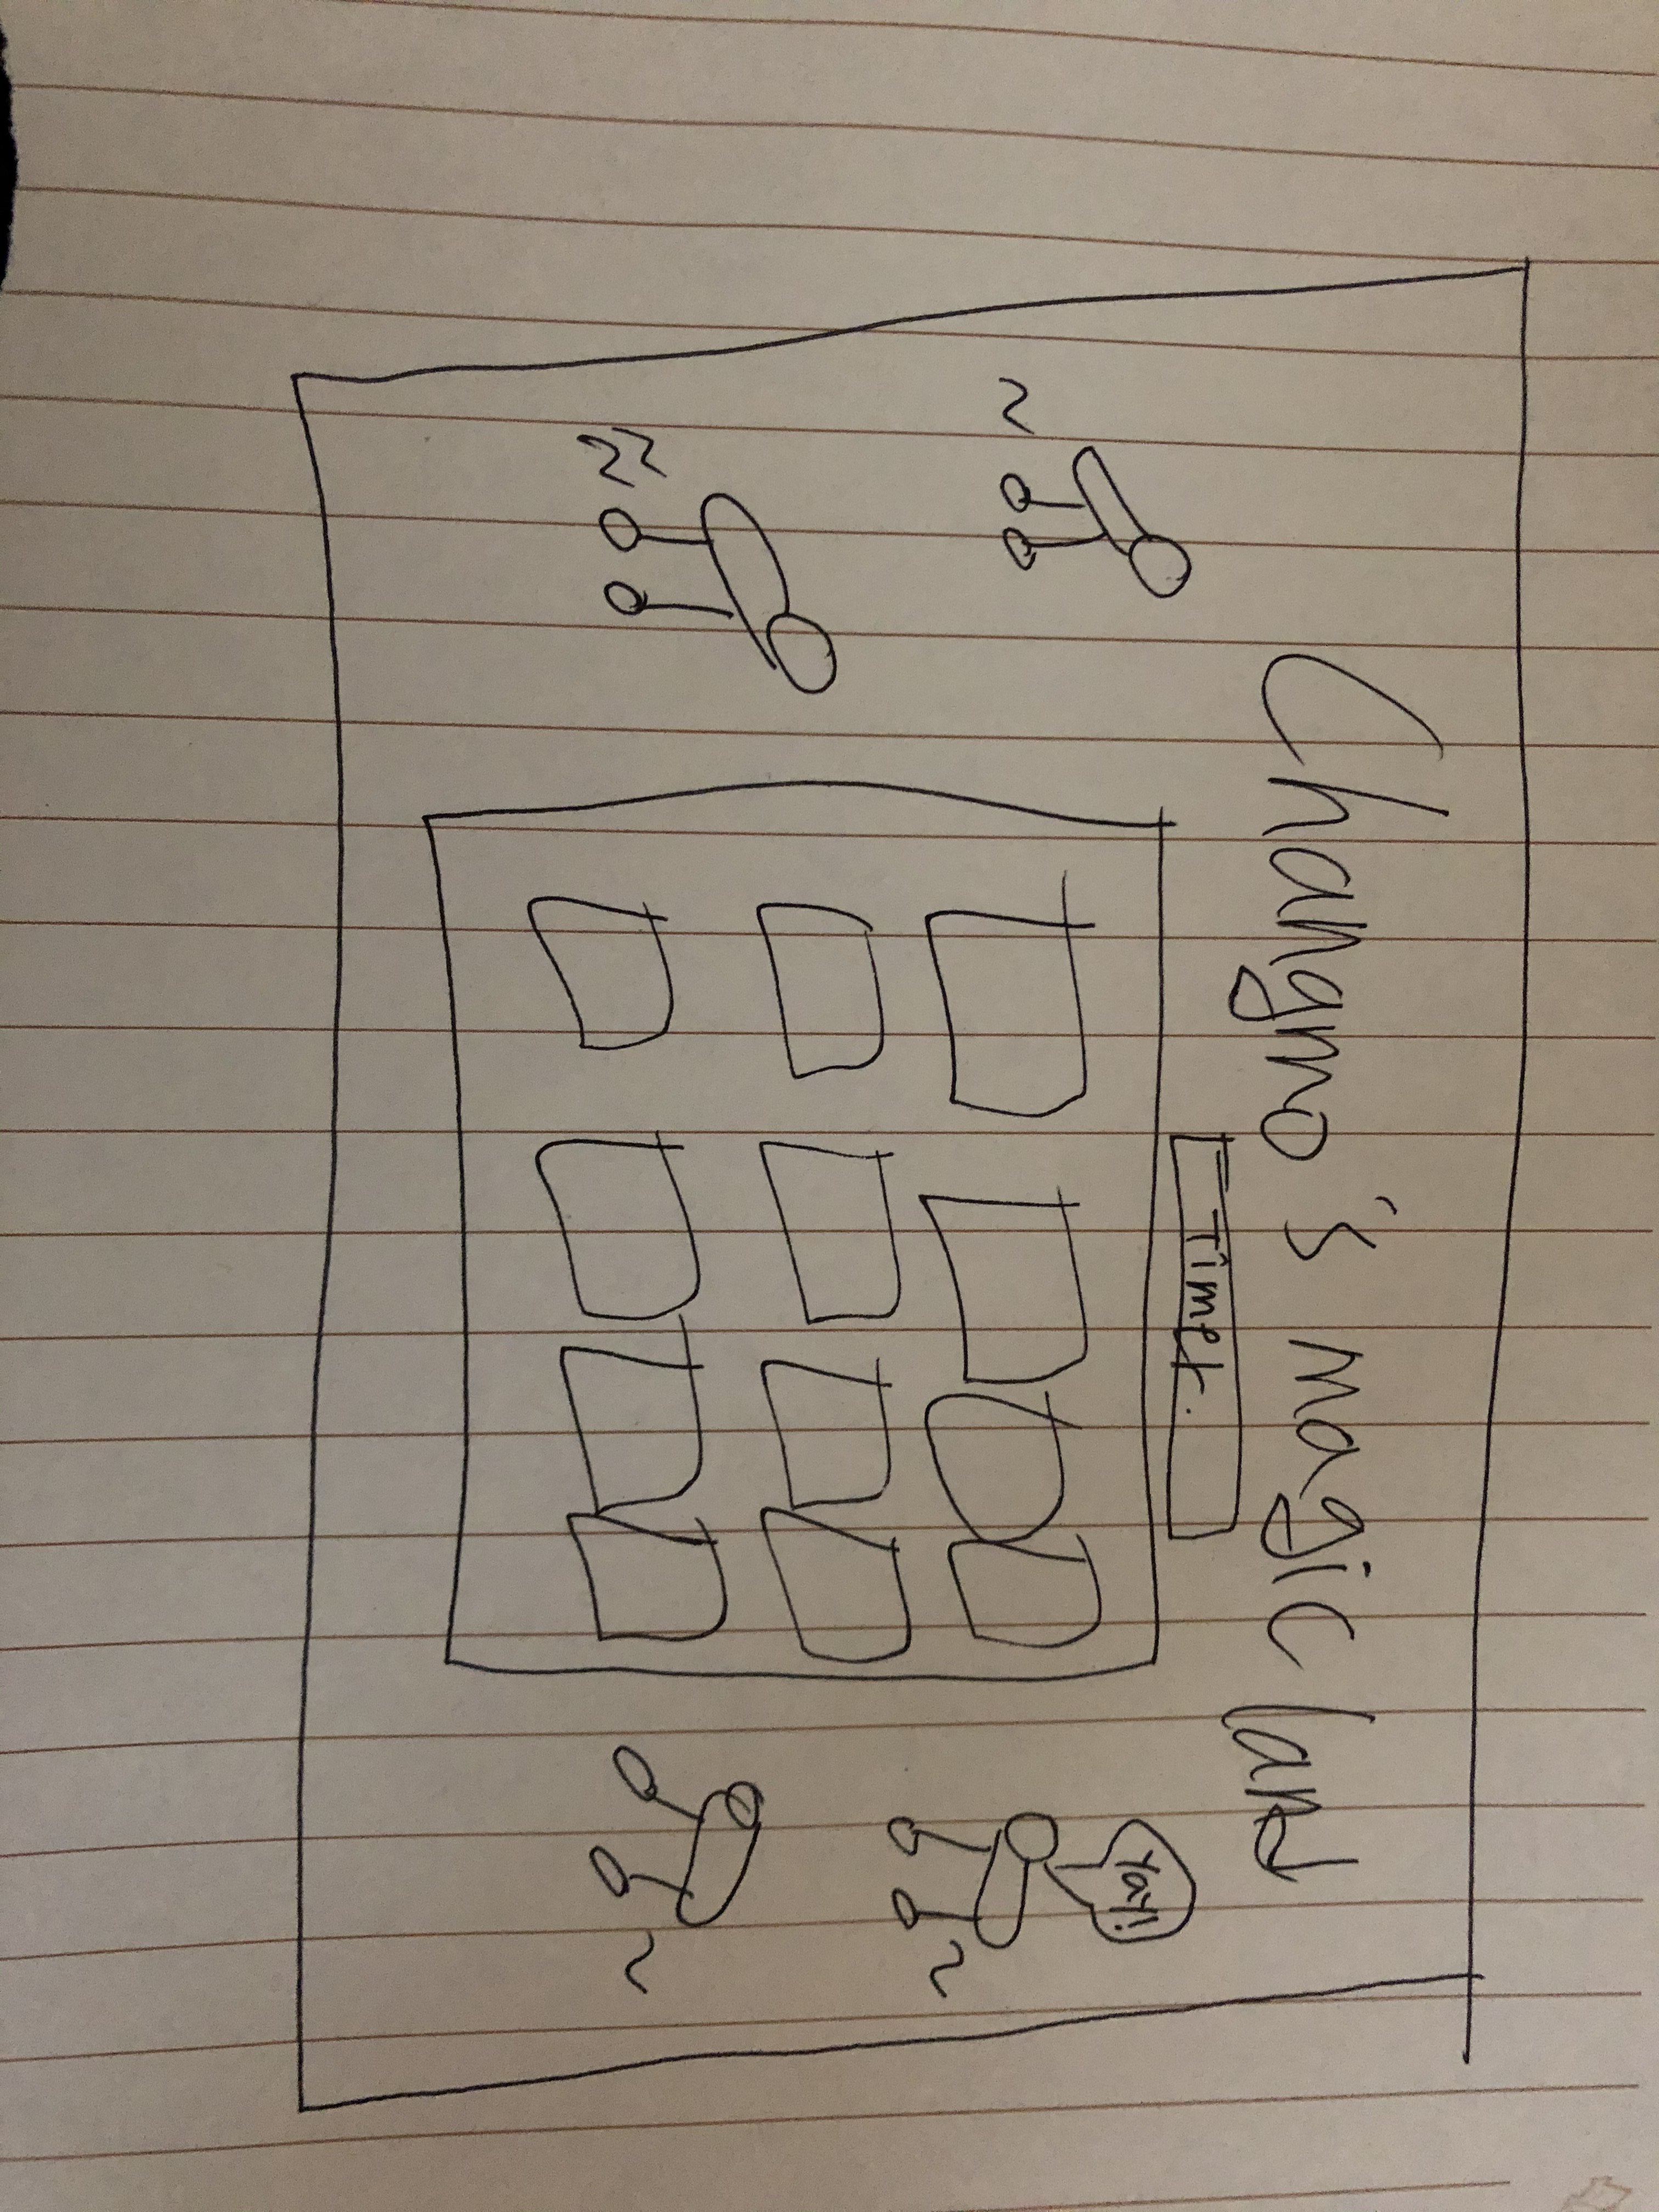 Changmo's magic land
Timer.
Yay!!